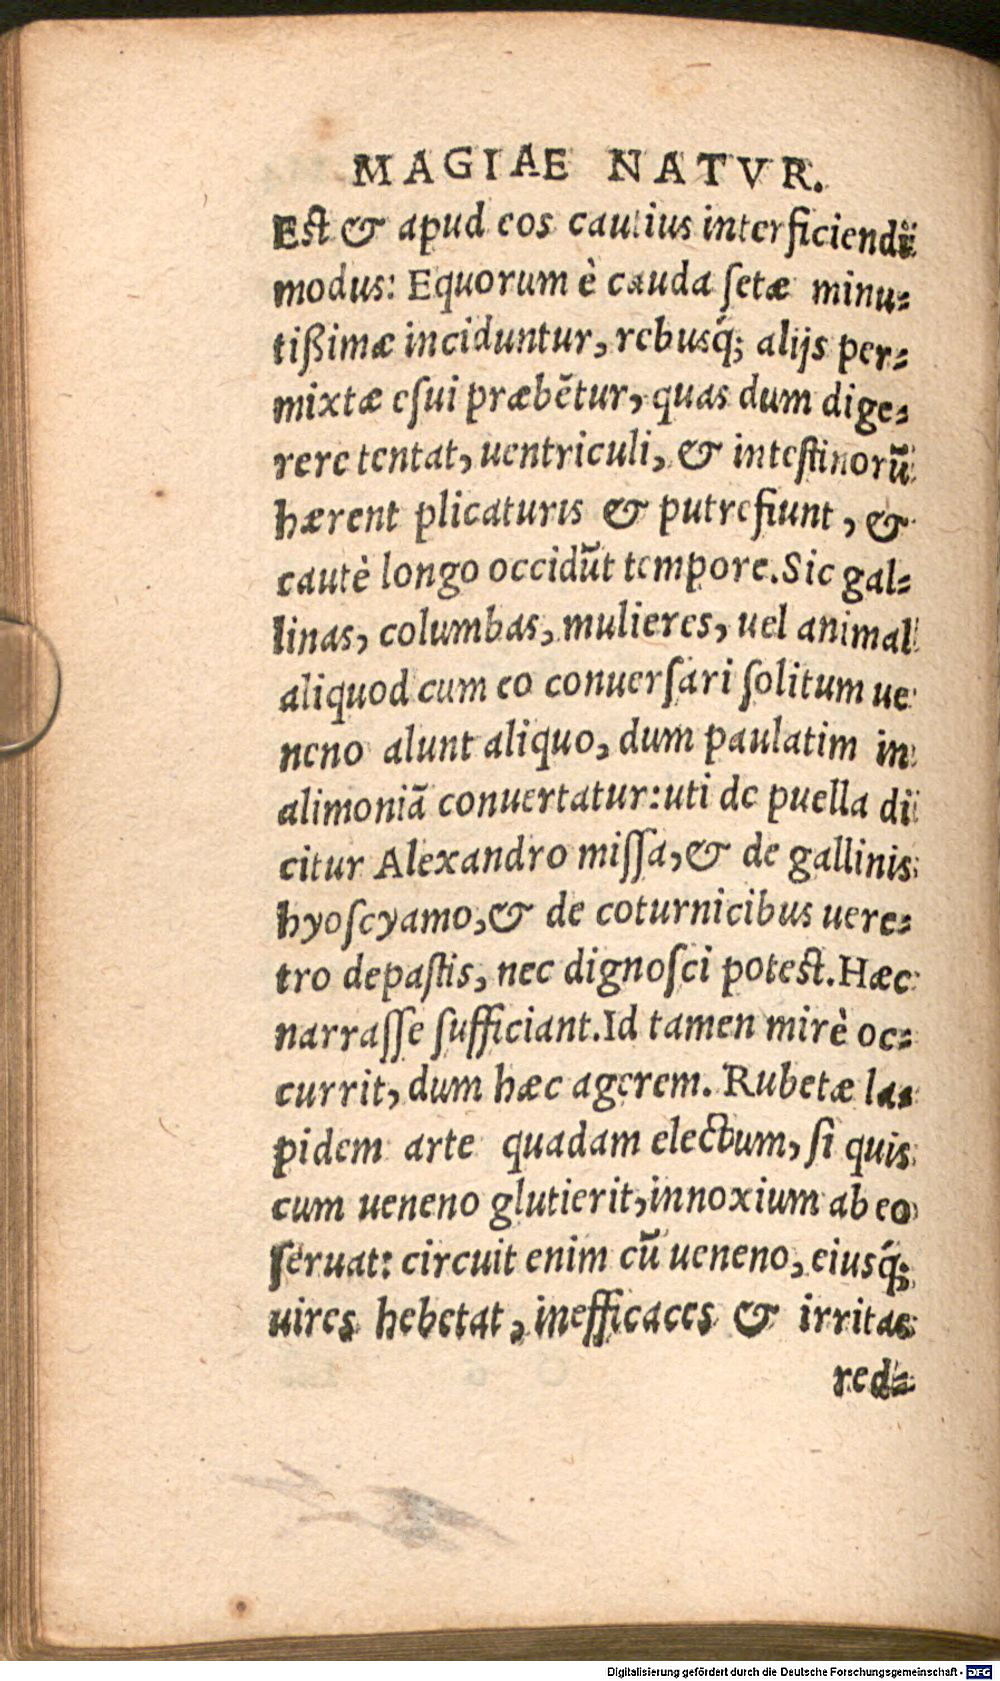 MAGIAE NATVR.
Est & apud eos cautius interficiendi
modus: Equorum è cauda setæ minu-
tißimæ inciduntur, rebusq́; alijs per-
mixtæ esui præbẽtur, quas dum dige-
rere tentat, uentriculi, & intestinorũ
hærent plicaturis & putrefiunt, &
cautè longo occidũt tempore. Sic gal-
linas, columbas, mulieres, uel animal
aliquod cum eo conuersari solitum ue
neno alunt aliquo, dum paulatim in
alimoniã conuertatur: uti de puella di
citur Alexandro missa, & de gallinis
hyoscyamo, & de coturnicibus uere-
tro depastis, nec dignosci potest. Hæc
narrasse sufficiant. Id tamen mirè oc-
currit, dum hæc agerem. Rubetæ la-
pidem arte quadam electum, si quis
cum ueneno glutierit, innoxium ab eo
seruat: circuit enim cũ ueneno, eiusq́;
uires hebetat, inefficaces & irritas
red-
Digitalisierung gefördert durch die Deutsche Forschungsgemeinschaft - DFG